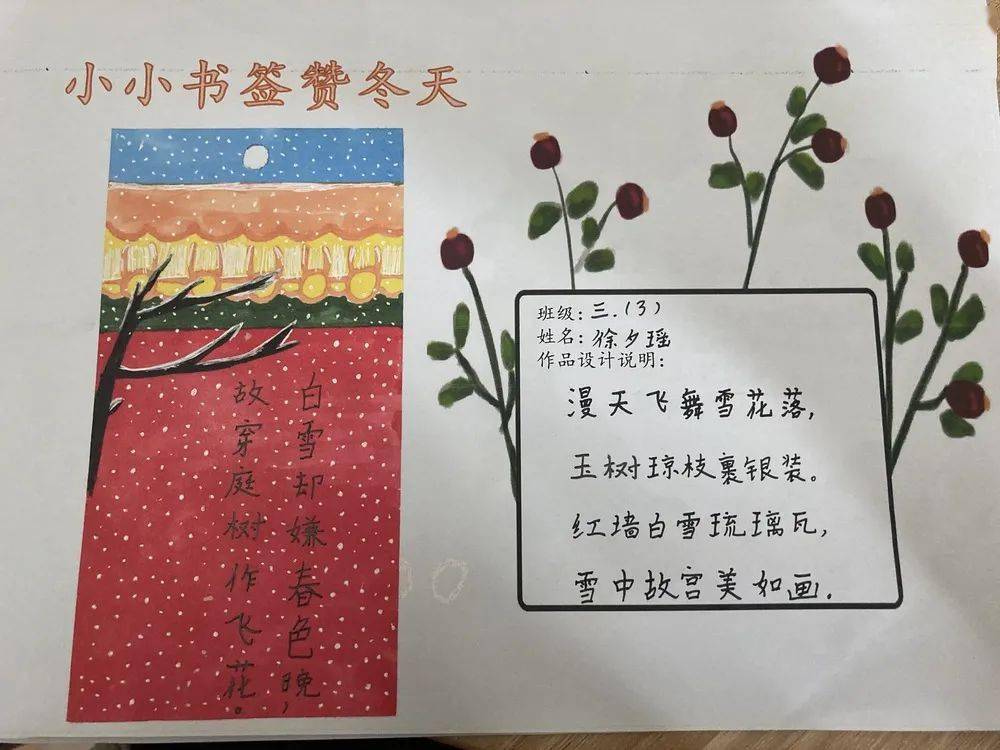 小小书签赞冬天
白雪却嫌春色晚,
故穿庭树作飞花。
班级:三.(3)
姓名:徐夕瑶
作品设计说明:
漫天飞舞雪花落,
玉树琼枝裹银装。
红墙白雪琉璃瓦,
雪中故宫美如画.